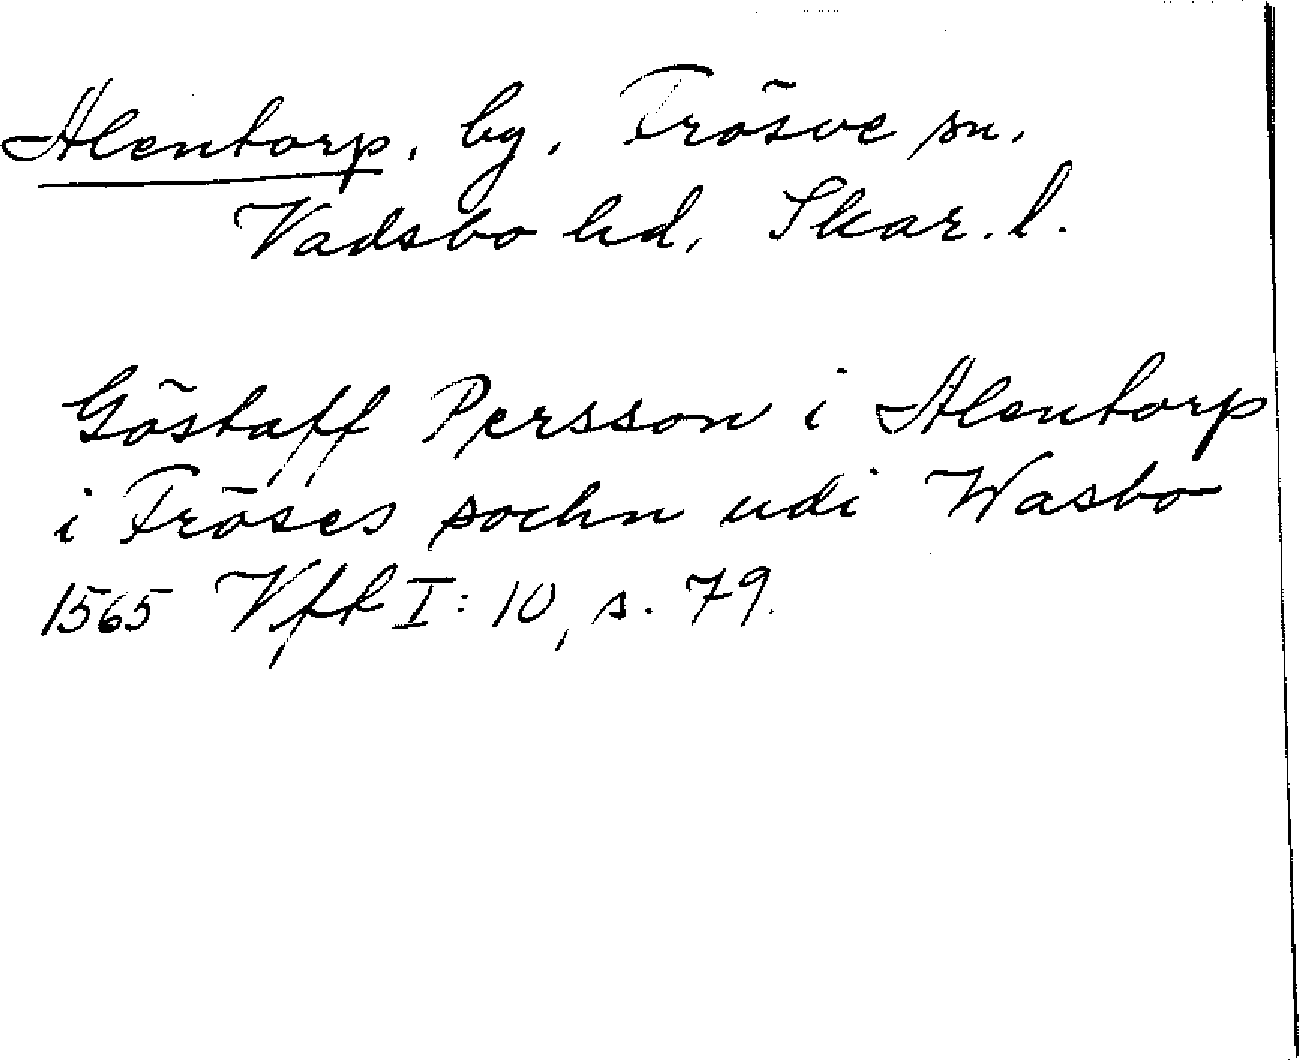 Alentorp, by, Frösve sn.
Vadsbo hd, Skar. l.
Göstaff Persson i Alentorp
i Fröses sochn udi Wasbo
1565 Vfh I: 10, s. 79.